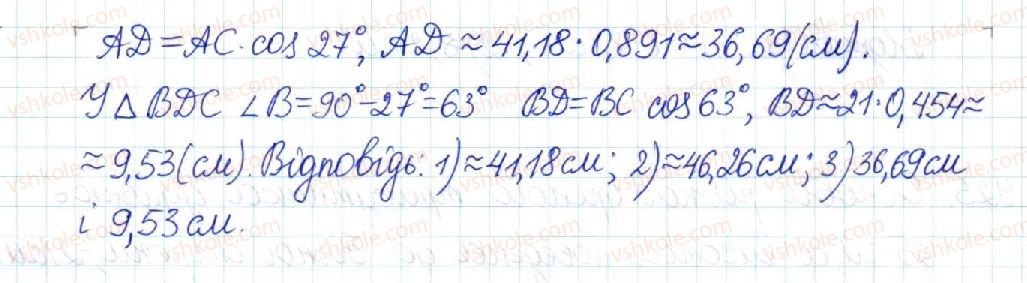 AD = AC · cos 27°, AD ≈ 41,18 · 0,891 ≈ 36,69 (см).
У △ BDC ∠B = 90° − 27° = 63° BD = BC cos 63°, BD ≈ 21 · 0,454 ≈
≈ 9,53 (см). Відповідь: 1) ≈ 41,18 см; 2) ≈ 46,26 см; 3) 36,69 см
і 9,53 см.